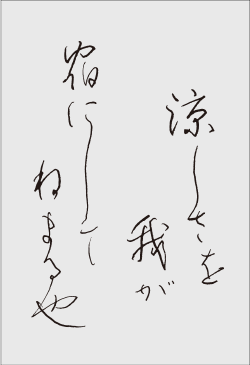 涼しさを
我が
宿にして
ねまる也